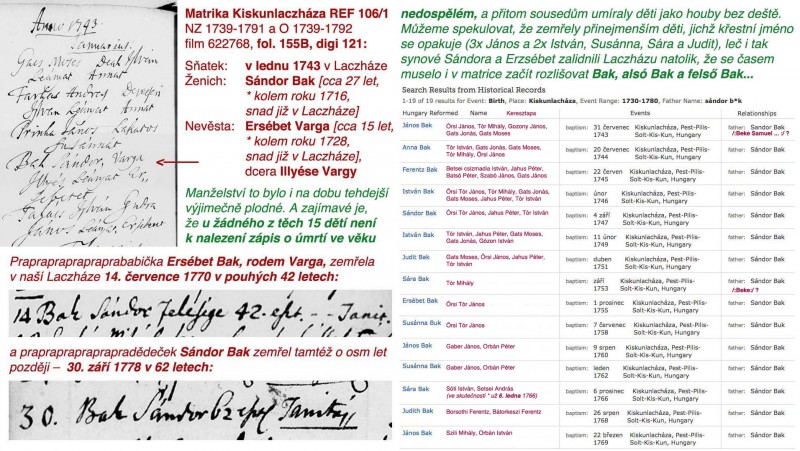 Anno 1743.
Januarius.
Matrika Kiskunlaczháza REF 106/1
NZ 1739-1791 a O 1739-1792
film 622768, fol. 155B, digi 121:
Sňatek: v lednu 1743 v Laczháze
Ženich: Sándor Bak [cca 27 let,
* kolem roku 1716,
snad již v Laczháze]
Nevěsta: Ersébet Varga [cca 15 let,
* kolem roku 1728,
snad již v Laczháze],
dcera Illyése Vargy
Bak Sándor, Varga
Manželství to bylo i na dobu tehdejší
výjimečně plodné. A zajímavé je,
že u žádného z těch 15 dětí není
k nalezení zápis o úmrtí ve věku
Praprapraprapraprababička Ersébet Bak, rodem Varga, zemřela
v naší Laczháze 14. července 1770 v pouhých 42 letech:
14 Bak Sándor Felésige 42. eszt.
a prapraprapraprapradědeček Sándor Bak zemřel tamtéž o osm let
později – 30. září 1778 v 62 letech:
30. Bak Sándor 62
nedospělém, a přitom sousedům umíraly děti jako houby bez deště.
Můžeme spekulovat, že zemřely přinejmenším děti, jichž křestní jméno
se opakuje (3x János a 2x István, Susánna, Sára a Judit), leč i tak
synové Sándora a Erzsébet zalidnili Laczházu natolik, že se časem
muselo i v matrice začít rozlišovat Bak, alsó Bak a felső Bak...
Search Results from Historical Records
1-19 of 19 results for Event: Birth, Place: Kiskunlacháza, Event Range: 1730-1780, Father Name: sándor b*k
Hungary Reformed Name Keresztapa Events Relationships
János Bak Örsi János, Tór Mihály, Gozony János, baptism: 31 červenec Kiskunlacháza, Pest-Pilis- father: Sándor Bak
Gats Jonás, Gats Moses 1743 Solt-Kis-Kun, Hungary /:Beke Samuel ... :/ ?
Anna Bak Tór István, Gats Jonás, Gats Moses, baptism: 20 červenec Kiskunlacháza, Pest-Pilis- father: Sándor Bak
Tór Mihály, Örsi János 1744 Solt-Kis-Kun, Hungary
Ferentz Bak Betsei csizmadia István, Jahus Péter, baptism: 22 červen Kiskunlacháza, Pest-Pilis- father: Sándor Bak
Batsó Péter, Szabó János, Gats János 1745 Solt-Kis-Kun, Hungary
István Bak Örsi Tór János, Tór Mihály, Gats Jonás, baptism: únor Kiskunlacháza, Pest-Pilis- father: Sándor Bak
Gats Moses, Jahus Péter, Tór István 1746 Solt-Kis-Kun, Hungary
Sándor Bak Örsi Tór János, Jahus Péter, Tór István baptism: 4 září Kiskunlacháza, Pest-Pilis- father: Sándor Bak
1747 Solt-Kis-Kun, Hungary
István Bak Tór István, Jahus Péter, Gats Moses, baptism: 11 únor Kiskunlacháza, Pest-Pilis- father: Sándor Bak
Gats Jonás, Gózon István 1749 Solt-Kis-Kun, Hungary
Judit Bak Gats Moses, Örsi János, Jahus Péter, baptism: duben Kiskunlacháza, Pest-Pilis- father: Sándor Bak
Tór István 1751 Solt-Kis-Kun, Hungary
Sára Bak Tór Mihály baptism: září Kiskunlacháza, Pest-Pilis- father: Sándor Bak
1753 Solt-Kis-Kun, Hungary /:Beke:/ ?
Ersébet Bak Örsi Tór János baptism: 1 prosinec Kiskunlacháza, Pest-Pilis- father: Sándor Bak
1755 Solt-Kis-Kun, Hungary
Susánna Buk Örsi Tór János baptism: 7 červenec Kiskunlacháza, Pest-Pilis- father: Sándor Buk
1758 Solt-Kis-Kun, Hungary
János Bak Gaber János, Orbán Péter baptism: 9 srpen Kiskunlacháza, Pest-Pilis- father: Sándor Bak
1760 Solt-Kis-Kun, Hungary
Susánna Bak Gaber János, Orbán Péter baptism: leden Kiskunlacháza, Pest-Pilis- father: Sándor Bak
1762 Solt-Kis-Kun, Hungary
Sára Bak Sóli István, Betsei András baptism: 6 prosinec Kiskunlacháza, Pest-Pilis- father: Sándor Bak
(ve skutečnosti * už 6. ledna 1766) 1766 Solt-Kis-Kun, Hungary
Judith Bak Borsothi Ferentz, Bátorkeszi Ferentz baptism: 26 srpen Kiskunlacháza, Pest-Pilis- father: Sándor Bak
1768 Solt-Kis-Kun, Hungary
János Bak Szili Mihály, Orbán István baptism: 22 březen Kiskunlacháza, Pest-Pilis- father: Sándor Bak
1769 Solt-Kis-Kun, Hungary